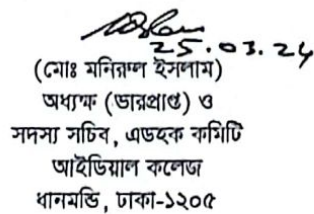 25.03.24
(মোঃ মনিরুল ইসলাম)
অধ্যক্ষ (ভারপ্রাপ্ত) ও
সদস্য সচিব, এডহক কমিটি
আইডিয়াল কলেজ
ধানমন্ডি, ঢাকা-১২০৫